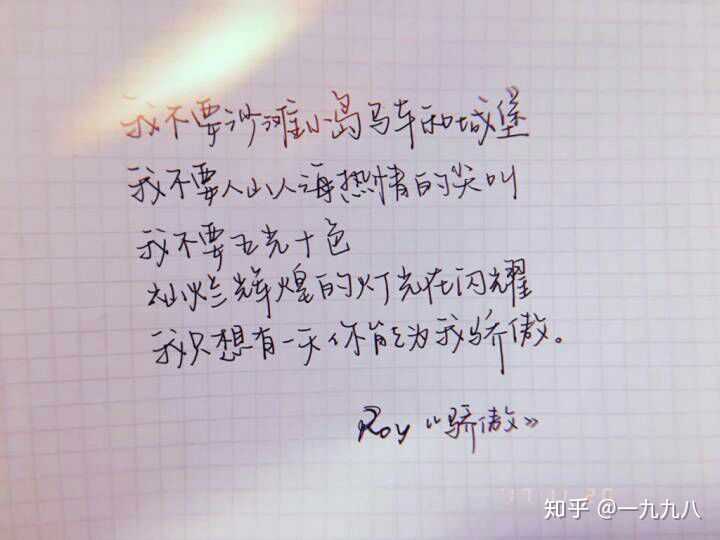 我不要沙滩小岛马车和城堡
我不要人山人海热情的尖叫
我不要五光十色
灿烂辉煌的灯光在闪耀
我只想有一天你能为我骄傲。
Roy《骄傲》
知乎 @一九九八